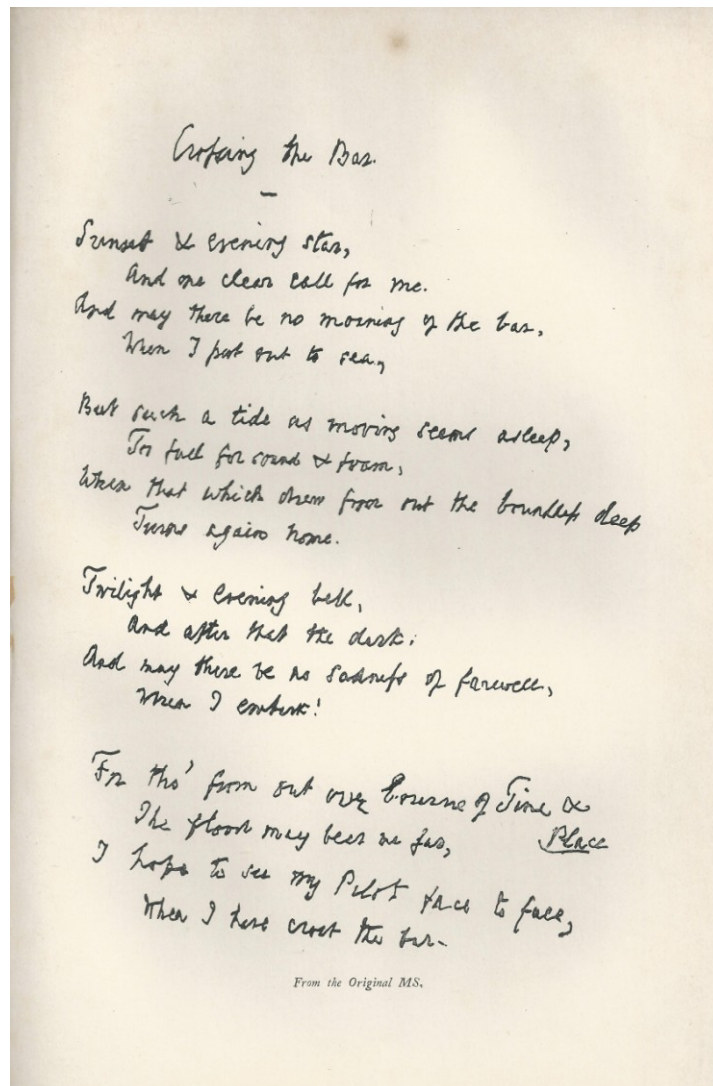 Crossing the Bar.
Sunset & evening star,
And one clear call for me.
And may there be no moaning of the bar,
When I put out to sea,
But such a tide as moving seems asleep,
Too full for sound & foam,
When that which drew from out the boundless deep
Turns again home.
Twilight & evening bell,
And after that the dark;
And may there be no sadness of farewell,
When I embark!
For tho' from out our bourne of Time &
Place
The flood may bear me far,
I hope to see my Pilot face to face,
When I have crost the bar.
From the Original MS.